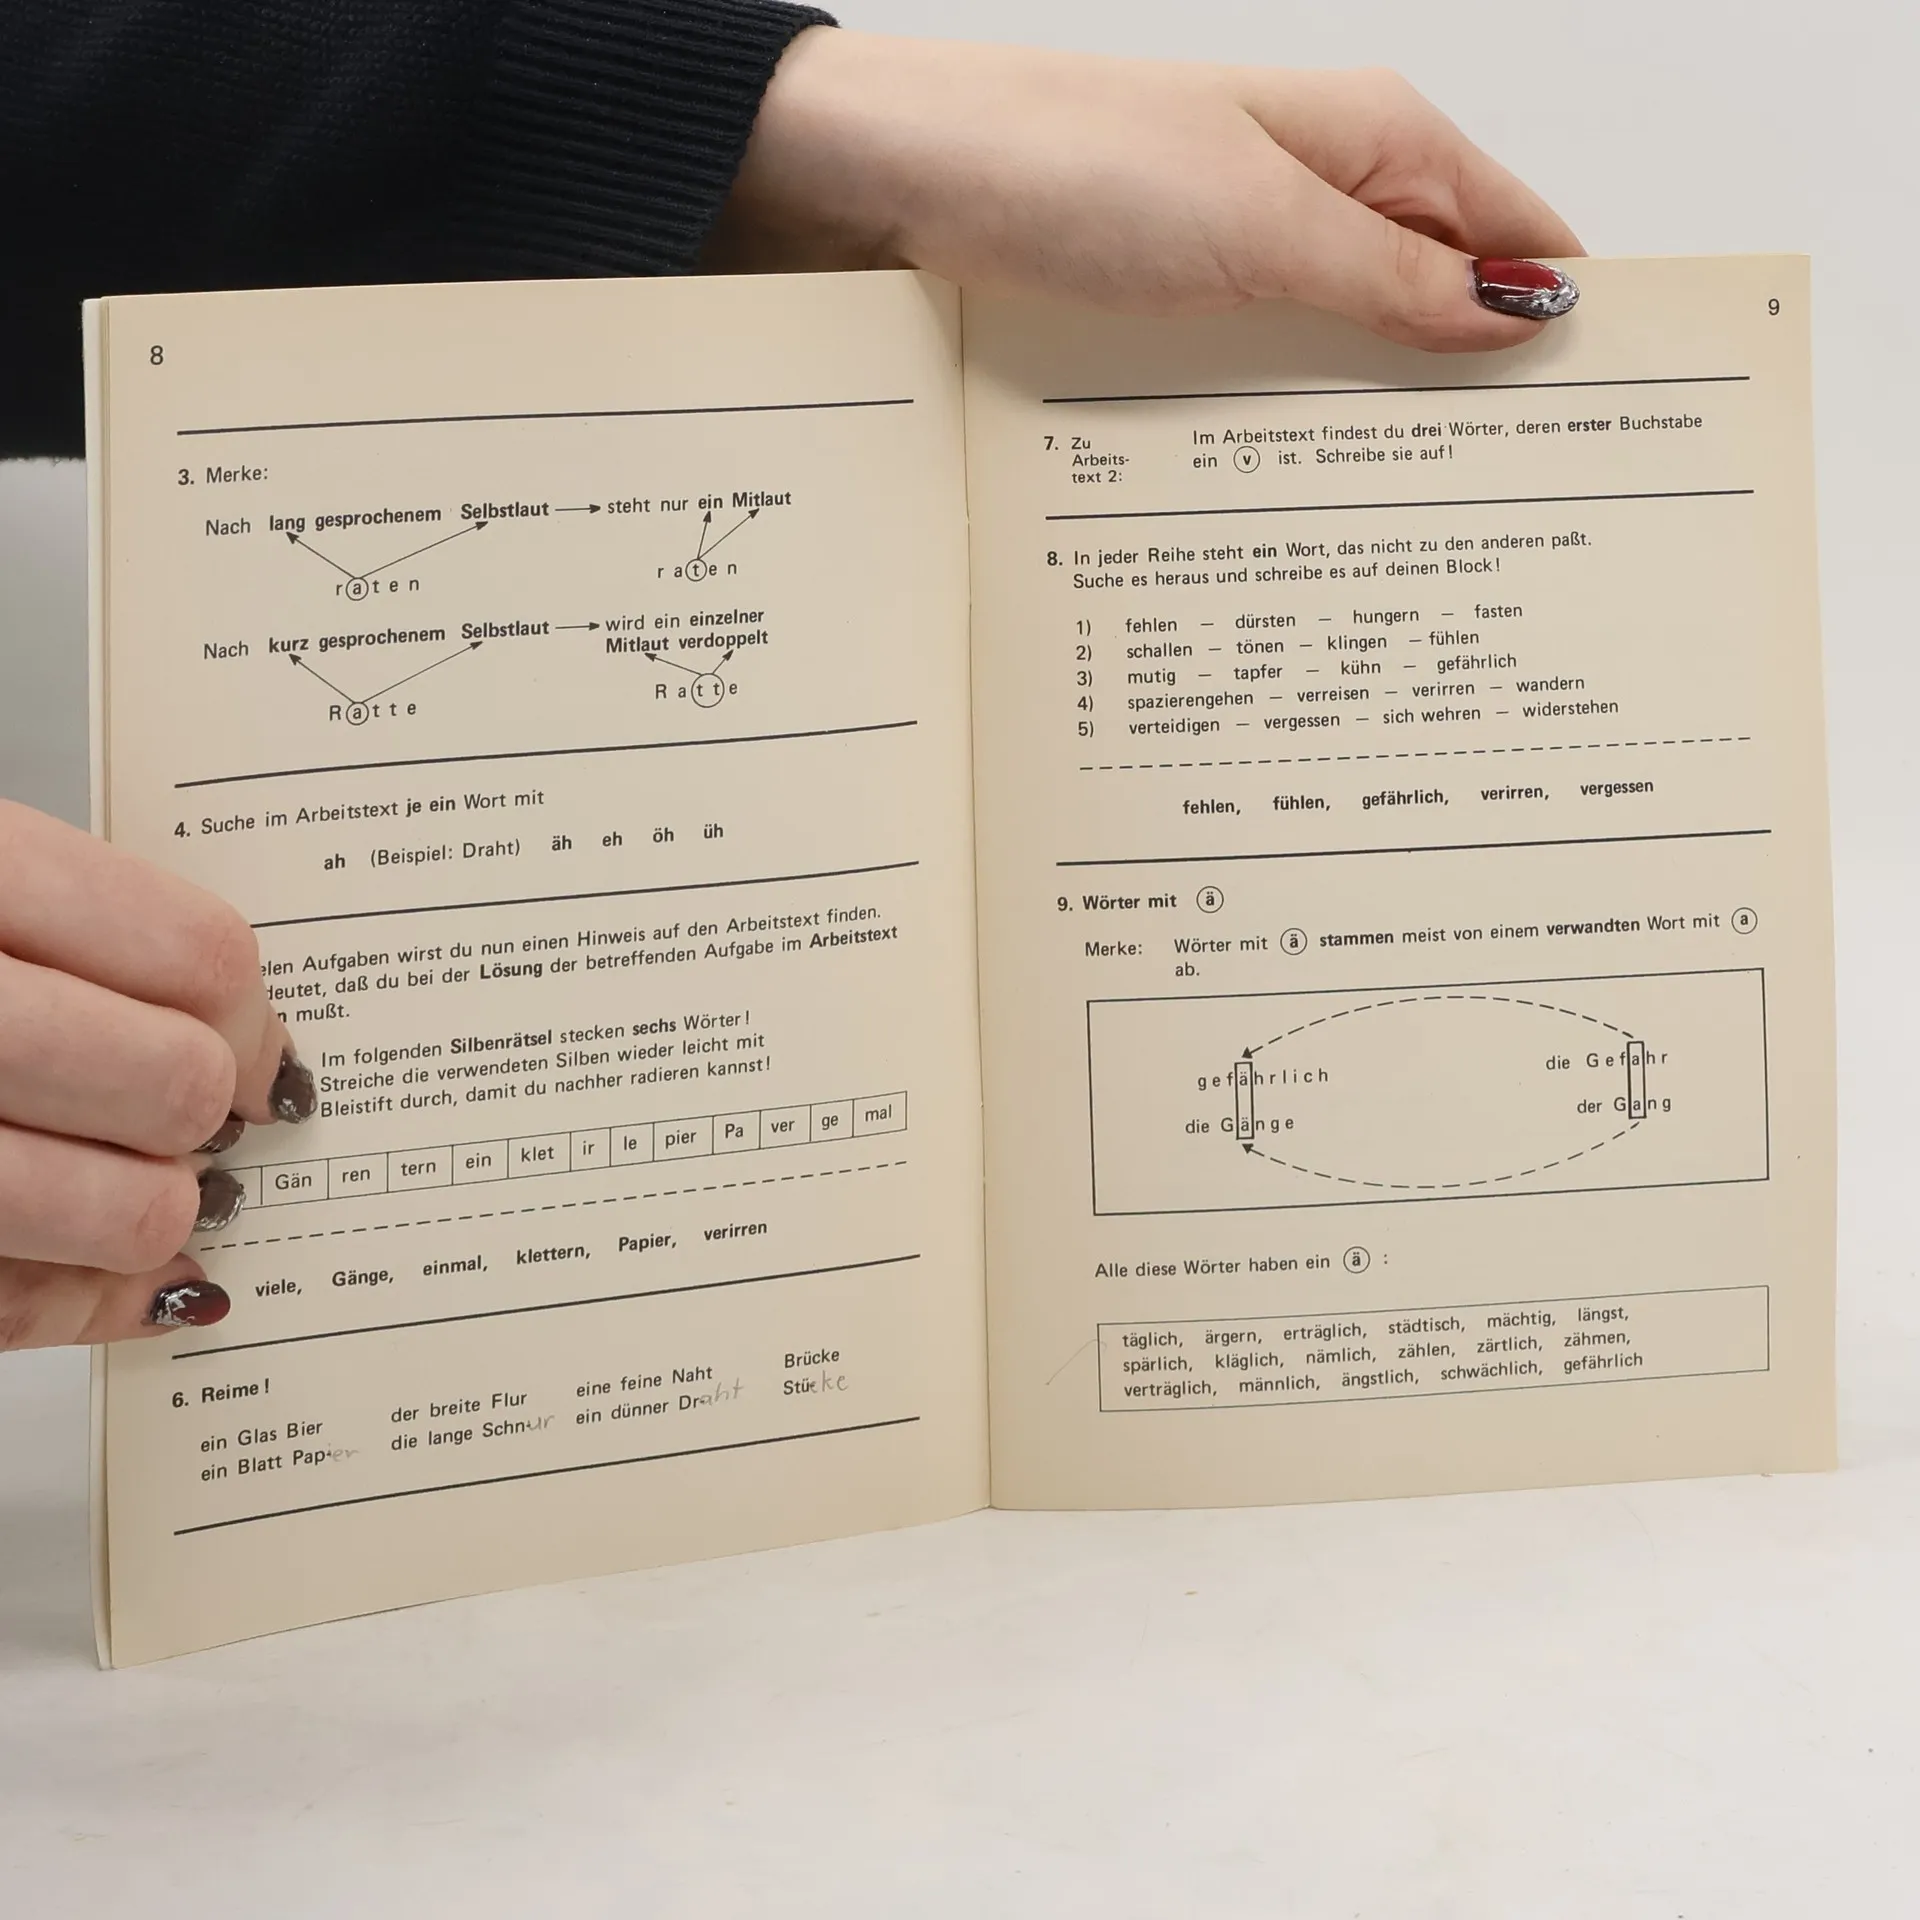 8
3. Merke:
Nach lang gesprochenem Selbstlaut → steht nur ein Mitlaut
raten
raten
Nach kurz gesprochenem Selbstlaut → wird ein einzelner
Mitlaut verdoppelt
Ratte
Ratte
4. Suche im Arbeitstext je ein Wort mit
ah (Beispiel: Draht) äh eh öh üh
Aufgaben wirst du nun einen Hinweis auf den Arbeitstext finden.
daß du bei der Lösung der betreffenden Aufgabe im Arbeitstext
mußt.
Im folgenden Silbenrätsel stecken sechs Wörter!
Streiche die verwendeten Silben wieder leicht mit
Bleistift durch, damit du nachher radieren kannst!
Gän ren tern ein klet ir le pier Pa ver ge mal
viele, Gänge, einmal, klettern, Papier, verirren
6. Reime!
ein Glas Bier der breite Flur eine feine Naht Brücke
ein Blatt Papier die lange Schnur ein dünner Draht Stücke
9
7. Zu Arbeits- text 2:
Im Arbeitstext findest du drei Wörter, deren erster Buchstabe
ein v ist. Schreibe sie auf!
8. In jeder Reihe steht ein Wort, das nicht zu den anderen paßt.
Suche es heraus und schreibe es auf deinen Block!
1) fehlen — dürsten — hungern — fasten
2) schallen — tönen — klingen — fühlen
3) mutig — tapfer — kühn — gefährlich
4) spazierengehen — verreisen — verirren — wandern
5) verteidigen — vergessen — sich wehren — widerstehen
fehlen, fühlen, gefährlich, verirren, vergessen
9. Wörter mit ä
Merke: Wörter mit ä stammen meist von einem verwandten Wort mit a
ab.
gefährlich die Gefahr
die Gänge der Gang
Alle diese Wörter haben ein ä :
täglich, ärgern, erträglich, städtisch, mächtig, längst,
spärlich, kläglich, nämlich, zählen, zärtlich, zähmen,
verträglich, männlich, ängstlich, schwächlich, gefährlich